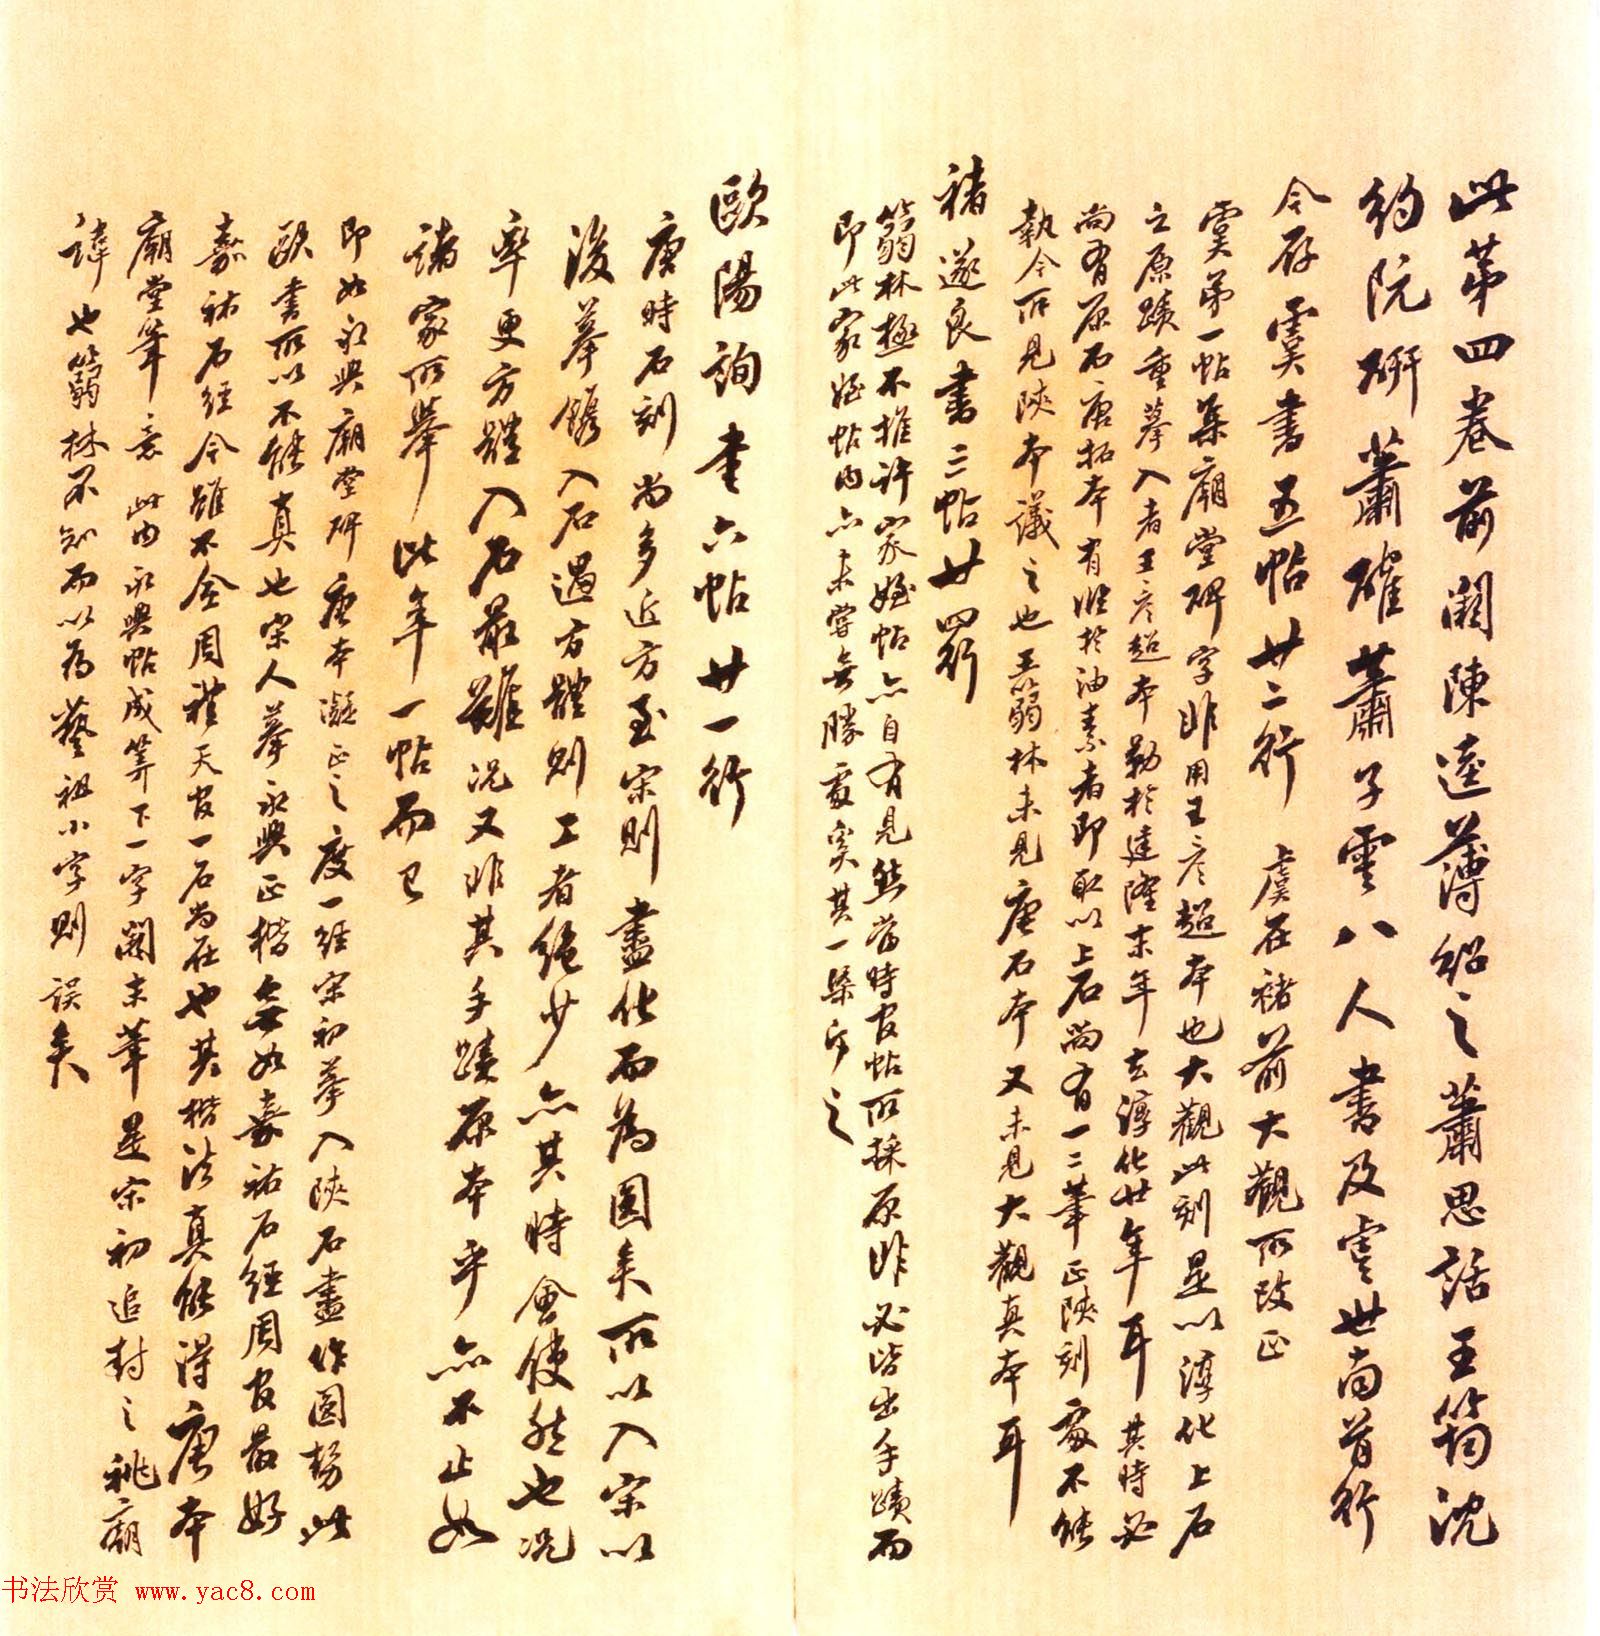 此第四卷前闕陳逵薄紹之蕭思話王筠沈
約阮研蕭確蕭子雲八人書及虞世南首行
今存虞書五帖廿二行 虞在褚前大觀所改正
虞第一帖集廟堂碑字非用王彥超本也大觀此刻是以淳化上石
之原蹟重摹入者王彥超本勒於建隆末年去淳化廿年耳其時必
尚有原石唐拓本有雙於油素者即取以上石尚有一二筆正陝刻處不能
執今所見陝本議之也王蒻林未見唐石本又未見大觀真本耳
褚遂良書三帖廿四行
蒻林極不推許家姪帖亦自有見然當時官帖所採原非必皆出手蹟而
即此家姪帖內亦未嘗無勝處矣其一槩斥之
歐陽詢書六帖廿一行
唐時石刻尚多近方至宋則盡化而為圓矣所以入宋以
後摹鐫入石過方體則工者絕少亦其時會使然也況
率更方體入石最難況又非其手蹟原本乎亦不止如
諸家所舉此年一帖而已
即如永興廟堂碑唐本凝正之度一經宋初摹入陝石盡作圓勢此
歐書所以不能真也宋人摹永興正楷無如嘉祐石經周官最好
嘉祐石經今雖不全周禮天官一石尚在也其楷法真能得唐本
廟堂筆意此內永興帖成等下一字闕末筆是宋初追封之祧廟
諱也蒻林不知而以為藝祖小字則誤矣
书法欣赏 www.yac8.com